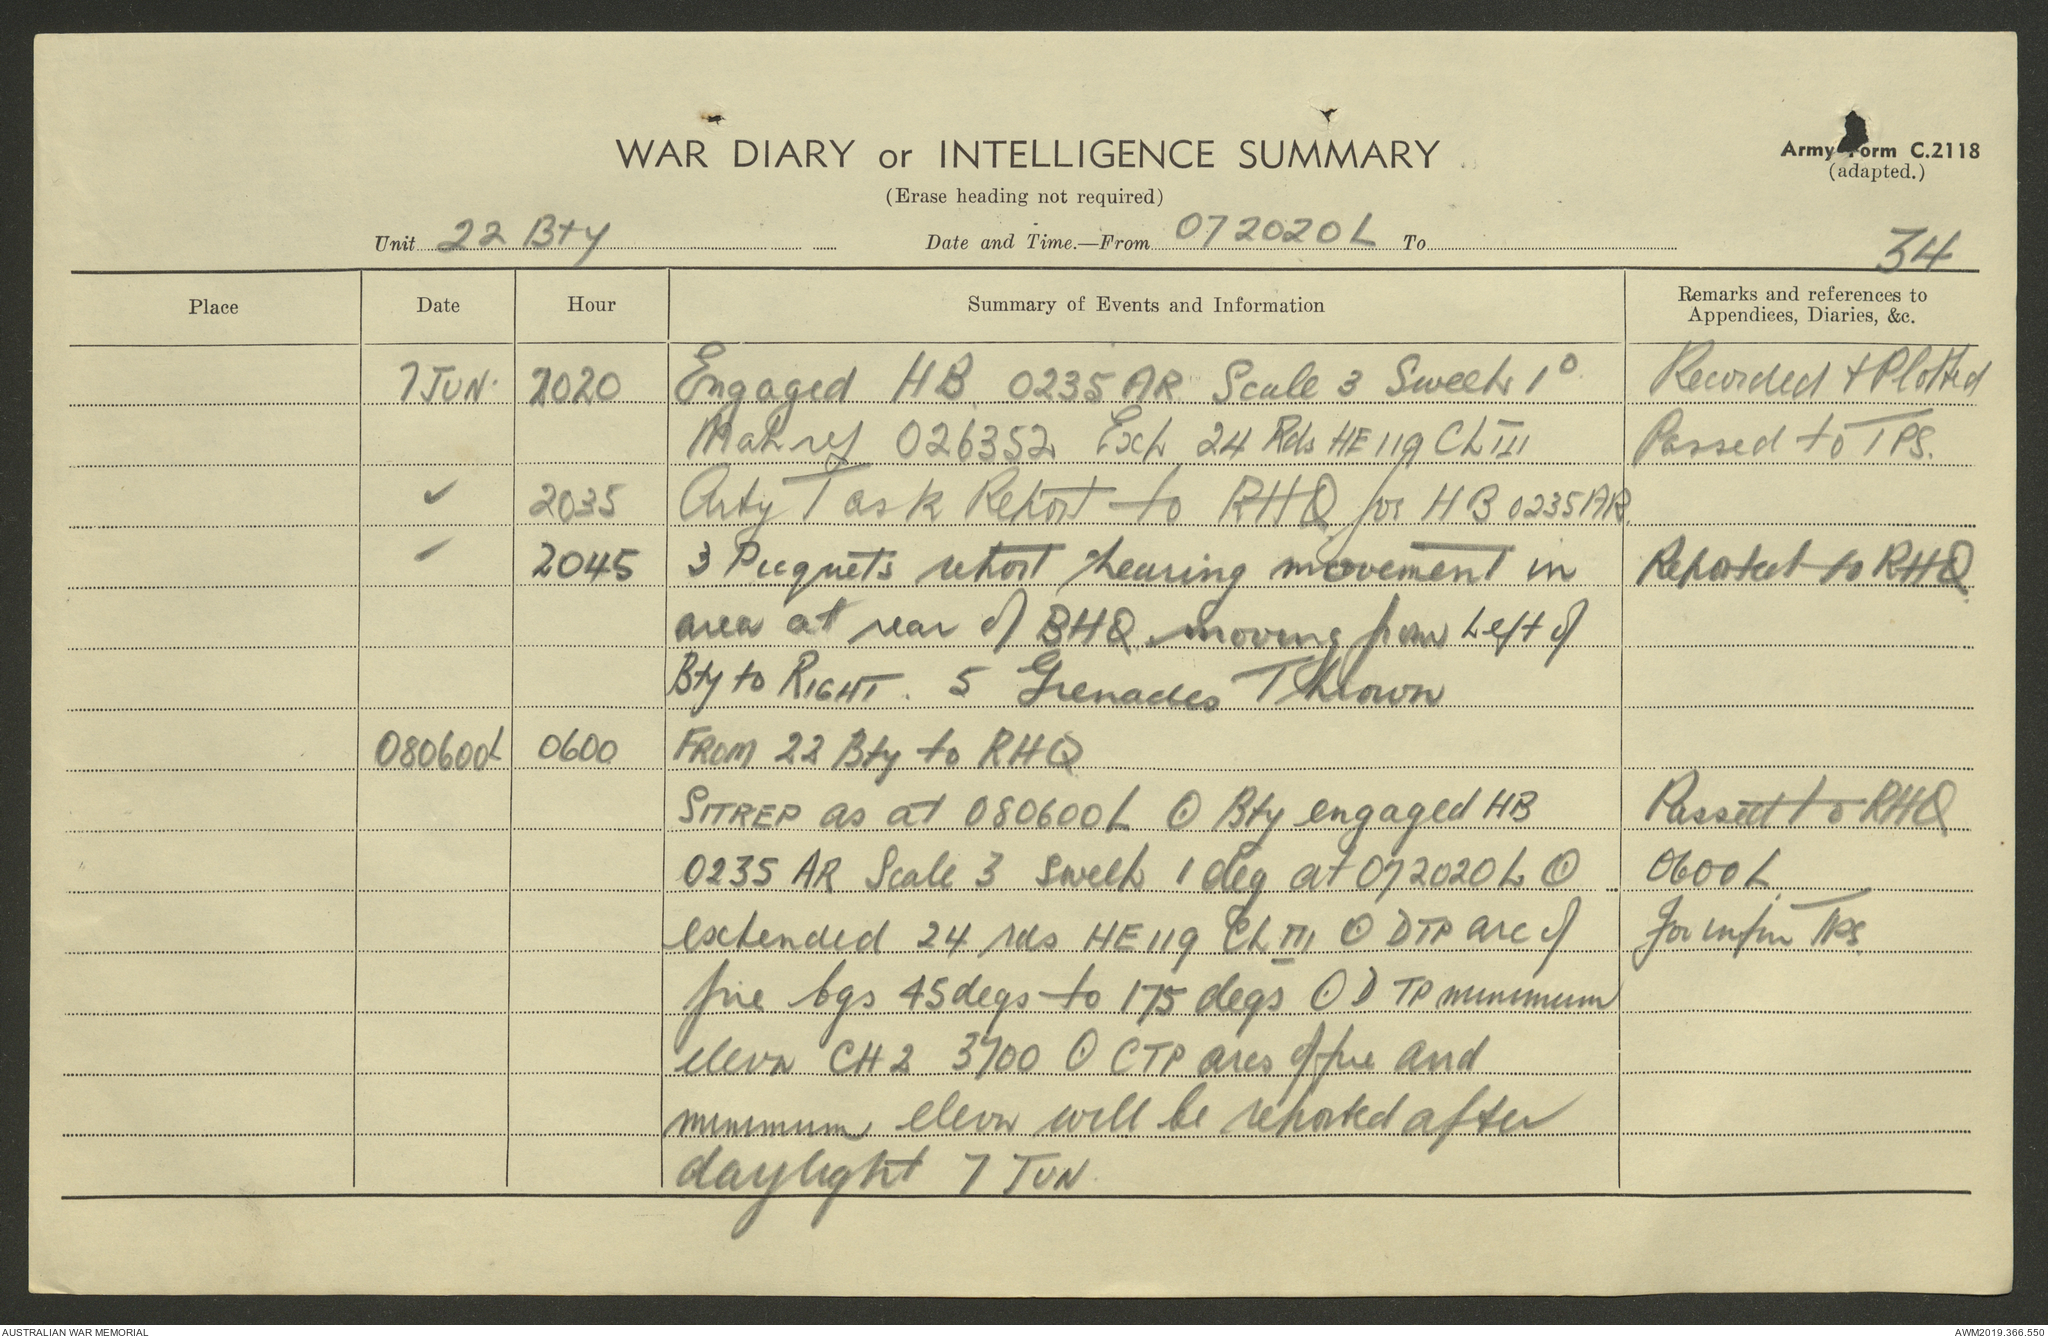 WAR DIARY or INTELLIGENCE SUMMARY
Army Form C.2118
(adapted.)
(Erase heading not required)
Unit 22 Bty Date and Time.—From 072020L To
34
Place Date Hour Summary of Events and Information Remarks and references to
Appendices, Diaries, &c.
7 JUN. 2020 Engaged HB 0235 AR Scale 3 Sweep 1° Recorded + Plotted
Map ref 026352 Exp 24 Rds HE 119 Ch III Passed to TPS.
✓ 2035 Arty Task Report to RHQ for HB 0235 AR.
2045 3 Picquets report hearing movement in Reported to RHQ
area at rear of BHQ moving from Left of
Bty to RIGHT. 5 Grenades Thrown
080600L 0600 FROM 22 Bty to RHQ
SITREP as at 080600L ⊙ Bty engaged HB Passed to RHQ
0235 AR Scale 3 sweep 1 deg at 072020L ⊙ 0600L
expended 24 rds HE 119 Ch III ⊙ DTP arc of for infm TPS
fire bgs 45 degs to 175 degs ⊙ DTP minimum
elevn CH 2 3700 ⊙ CTP arcs of fire and
minimum elevn will be reported after
daylight 7 JUN.
AUSTRALIAN WAR MEMORIAL
AWM2019.366.550